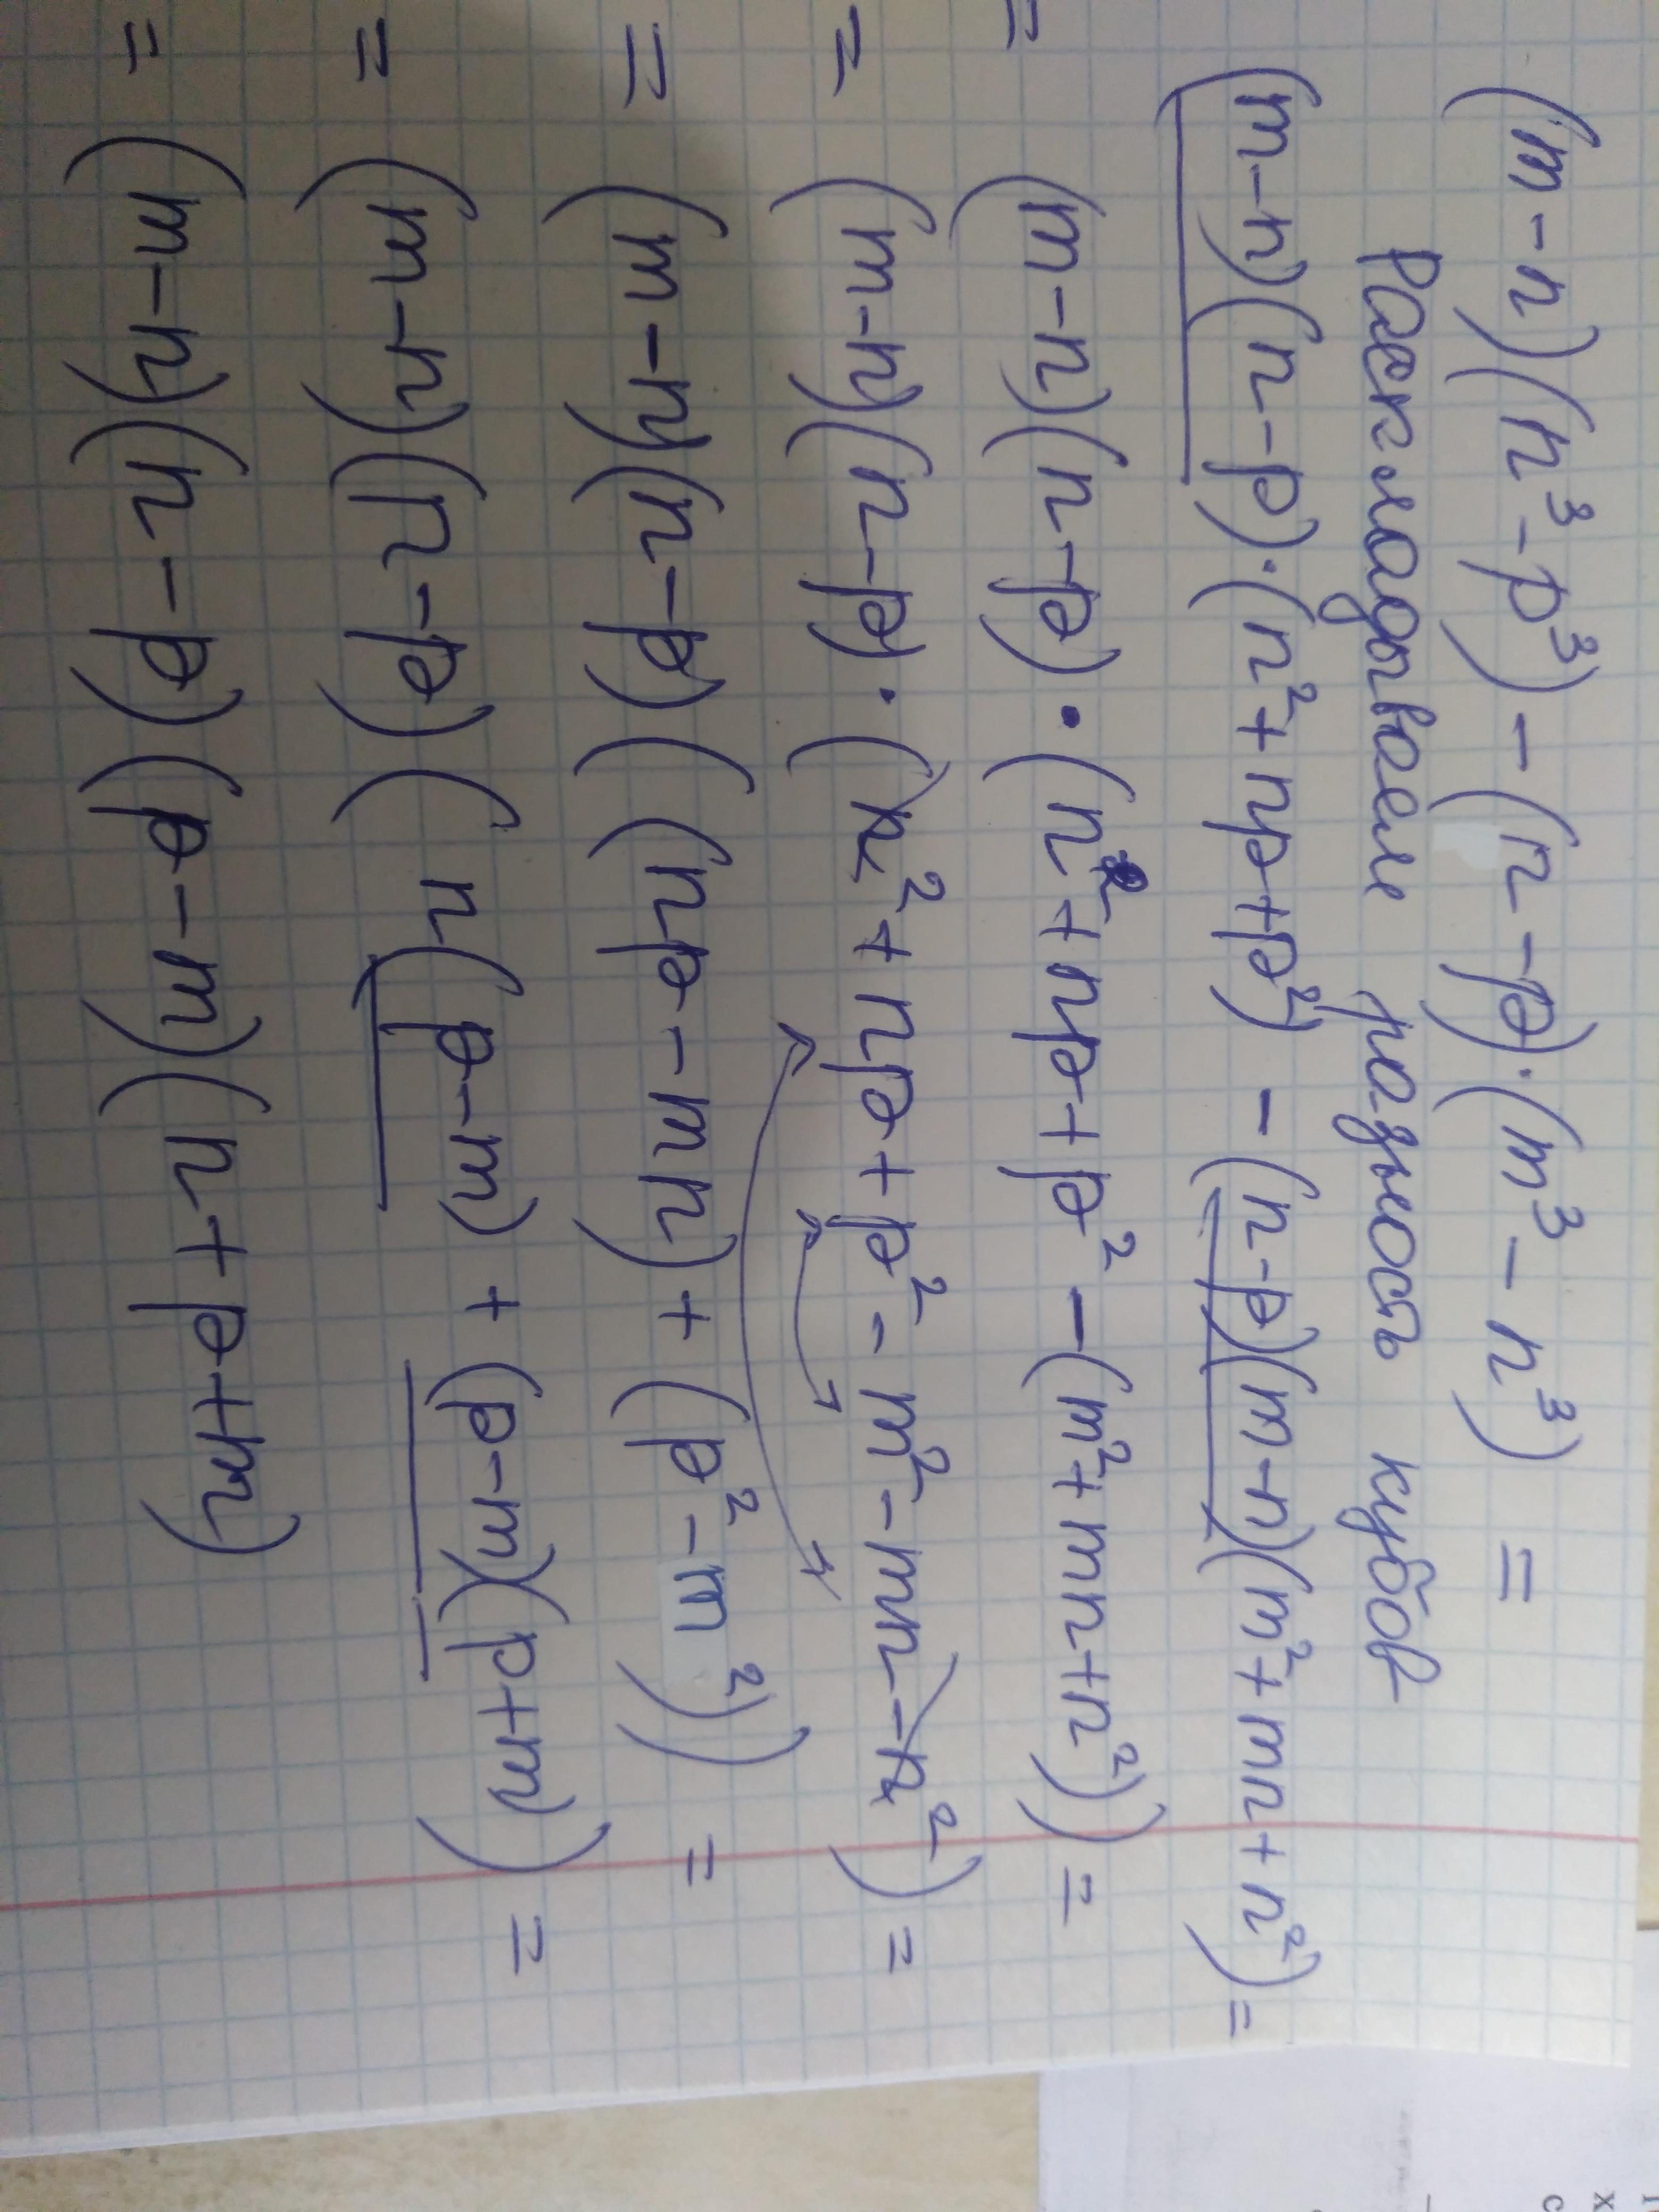 (m-n)(n³-p³) - (n-p)·(m³-n³) =
Раскладываем разность кубов
(m-n)(n-p)·(n²+np+p²) - (n-p)(m-n)(m²+mn+n²) =
= (m-n)(n-p)·(n²+np+p² - (m²+mn+n²)) =
= (m-n)(n-p)·(n²+np+p²-m²-mn-n²) =
= (m-n)(n-p)((np-mn)+(p²-m²)) =
= (m-n)(n-p)(n(p-m)+(p-m)(p+m)) =
= (m-n)(n-p)(p-m)(n+p+m)